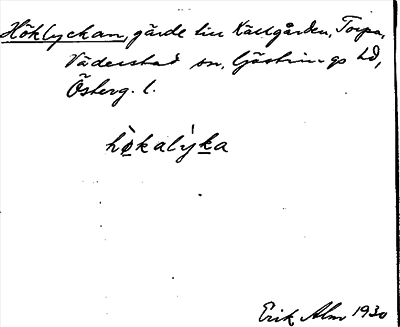 Höklyckan, gärde till Källgården, Torpa,
Väderstad sn, Göstrings hd,
Österg. l.
hø̀kalỳka
Erik Alm 1930